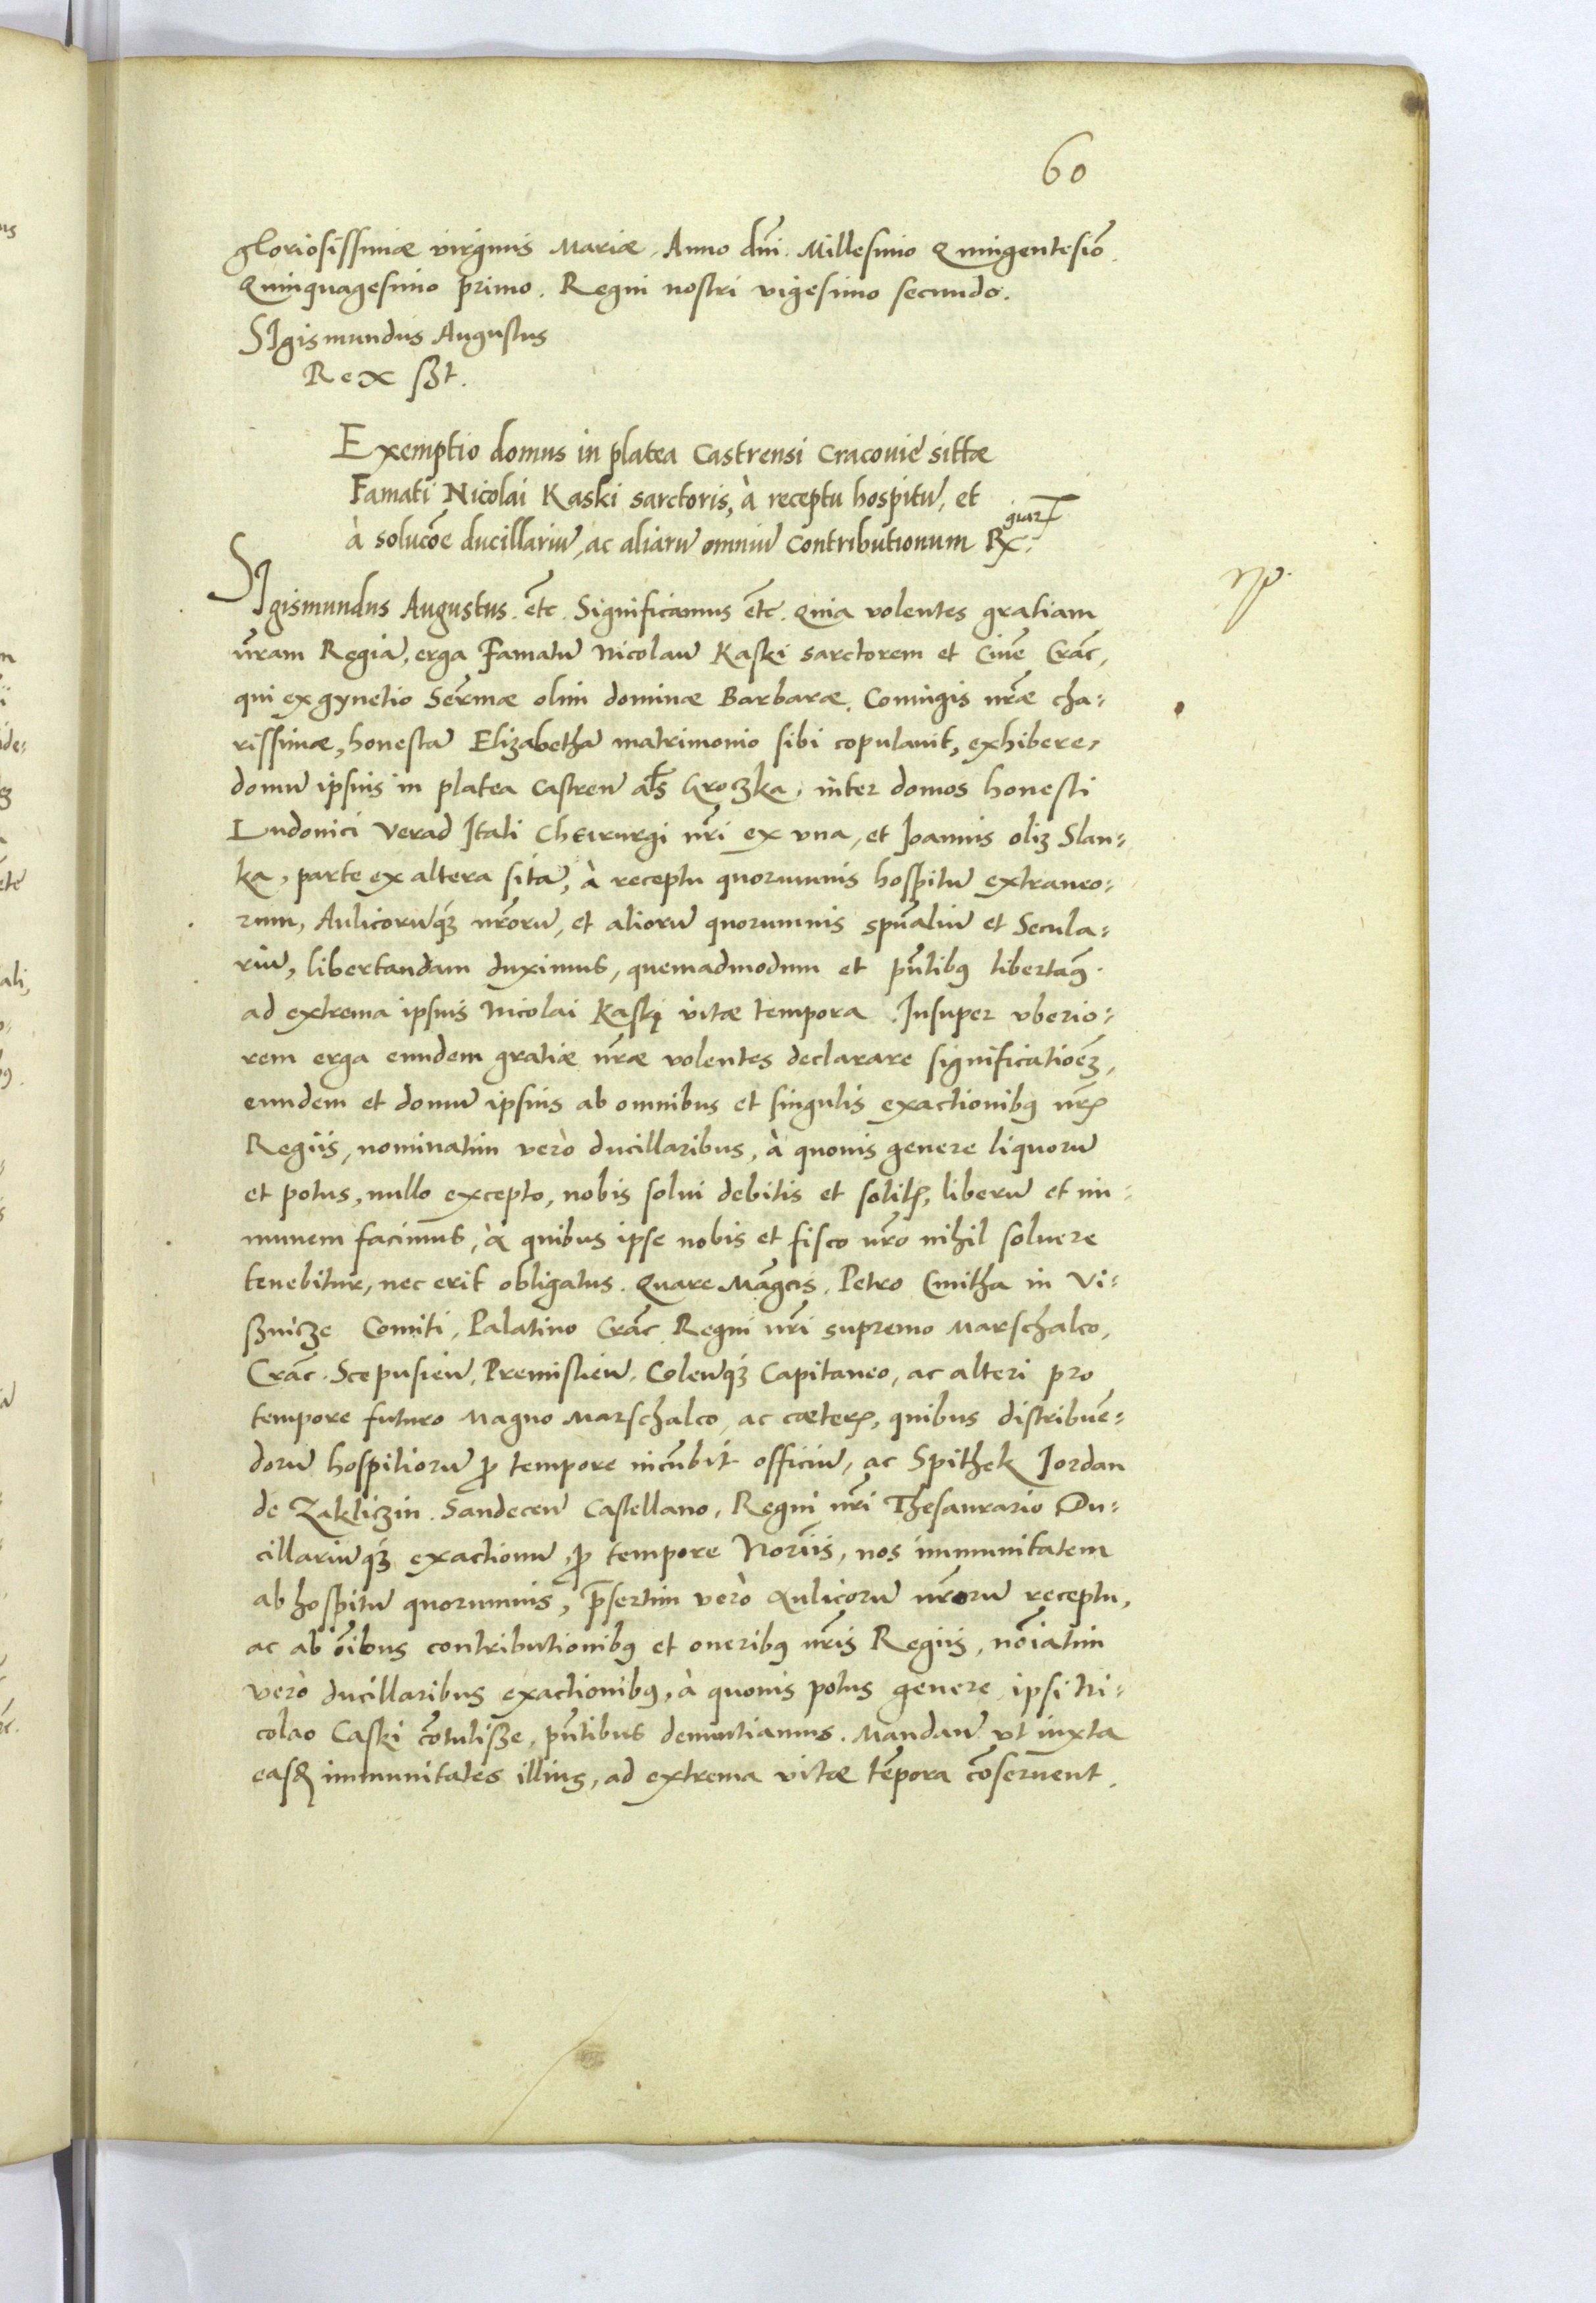 60
gloriosissimæ virginis Mariæ. Anno dn̄i. Millesimo Quingentesiō
Quinquagesimo primo. Regni nostri vigesimo secundo.
SIgismundus Augustus
Rex sszt.
Exemptio domus in platea Castrensi Cracouie sittæ
Famati Nicolai Kaski sarctoris, à receptu hospitū, et
à solucōe ducillariū, ac aliarū omniū contributionum Rx. giar
SIgismundus Augustus. etc̄. Significamus etc̄. Quia volentes gratiam
n̄ram Regiā, erga Famatū Nicolaū Kaski sarctorem et Ciuē Crāc,
qui ex gynetio Ser̄mæ olim dominæ Barbaræ, Coniugis nr̄æ cha-
rissimæ, honestā Elizabethā matrimonio sibi copulauit, exhibere,
domū ipsius in platea Castreñ al̄s Groczka, inter domos honesti
Ludouici Verad Itali Cheirurgi nr̄i ex vna, et Joannis oliz Slan-
ka, parte ex altera sitā, à receptu quorumuis hospitū extraneo-
rum, Aulicorūqʒ nr̄orū, et aliorū quorumuis spūaliū et Secula-
riū, libertandam duximus, quemadmodum et pn̄tibꝫ libertam̄.
ad extrema ipsius Nicolai Kaski vitæ tempora. Insuper vberio-
rem erga eundem gratiæ nr̄æ volentes declarare significatioēʒ,
eundem et domū ipsius ab omnibus et singulis exactionibꝫ nr̄is
Regiis, nominatim verò ducillaribus, à quouis genere liquorū
et potus, nullo excepto, nobis solui debitis et solitis, liberū et im-
munem facimus, à quibus ipse nobis et fisco nr̄o nihil soluere
tenebitur, nec erit obligatus. Quare Māgcis. Petro Cmitha in Vi-
sznicze Comiti, Palatino Crāc. Regni nr̄i supremo Marschalco,
Crāc. Scepusieñ, Premislieñ. Coleñqʒ Capitaneo, ac alteri pro
tempore futuro Magno Marschalco, ac cæteris, quibus distribuē-
dorū hospitiorū ꝓ tempore incūbit officiū, ac Spithek Jordan
de Zakliczin. Sandeceñ Castellano, Regni nr̄i Thesaurario Du-
cillariūqʒ exactionū, ꝓ tempore Nor̄iis, nos immunitatem
ab hospitū quorumuis, p̄sertim verò Aulicorū nr̄orū receptu,
ac ab ōibus contributionibꝫ et oneribꝫ nr̄is Regiis, nōiatim
verò ducillaribus exactionibꝫ, à quouis potus genere, ipsi Ni-
colao Caski cōtulisze, pn̄tibus denuntiamus. Mandañ vt iuxta
easdē immunitates illius, ad extrema vitæ tēpora cōseruent.